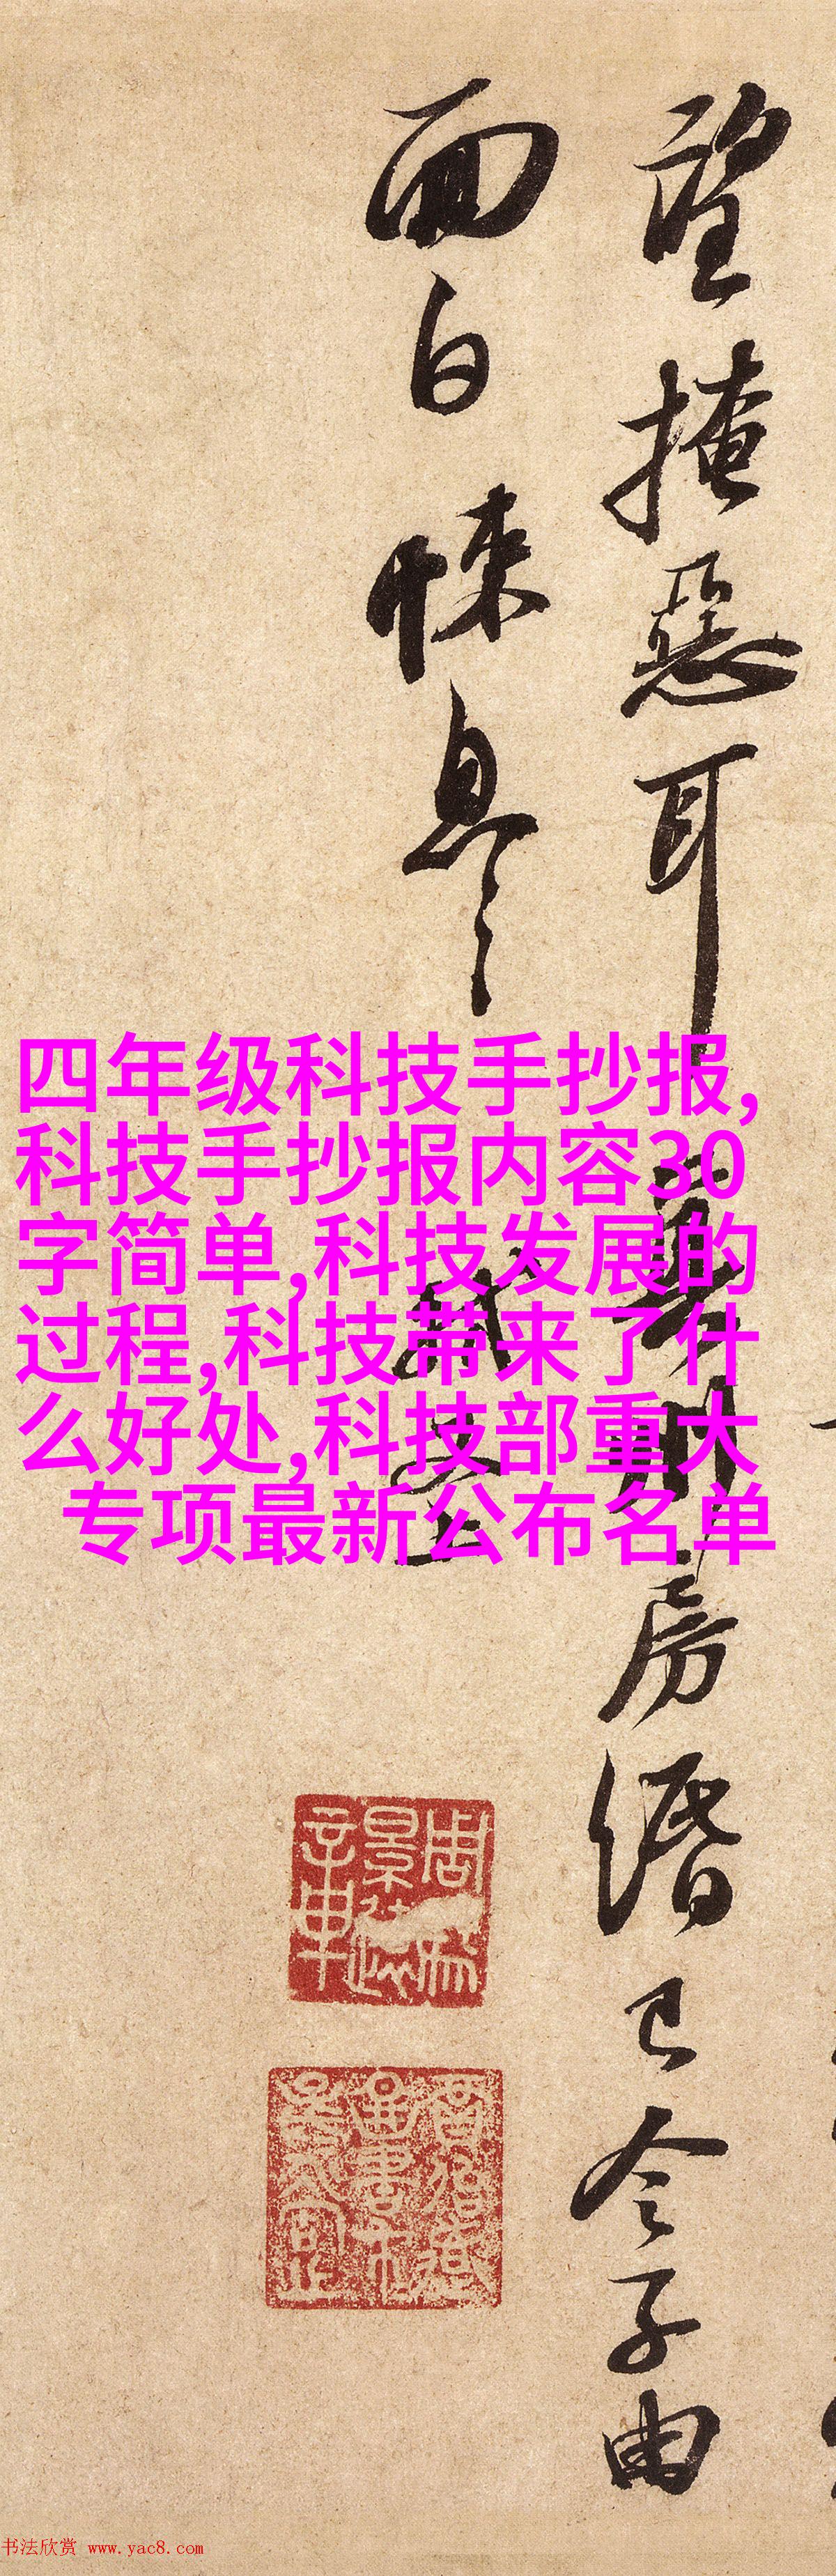 望掩惡耳
房緡已令子由
面白悚息
四年级科技手抄报,
科技手抄报内容30
字简单,科技发展的
过程,科技带来了什
么好处,科技部重大
专项最新公布名单
书法欣赏 www.yac8.com